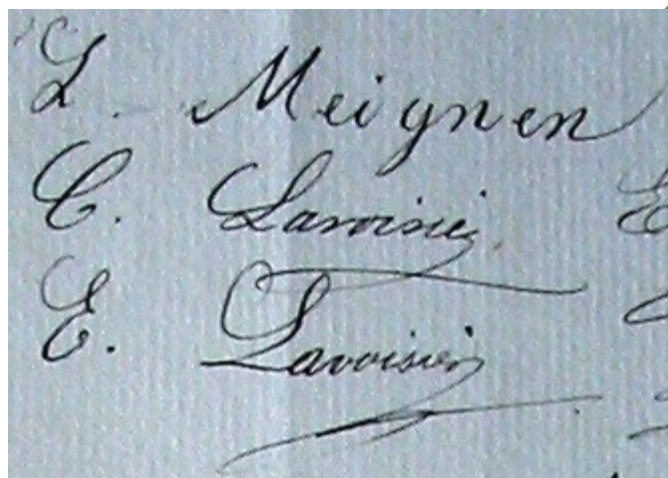 L. Meignen
C. Lavoisier E
E. Lavoisier